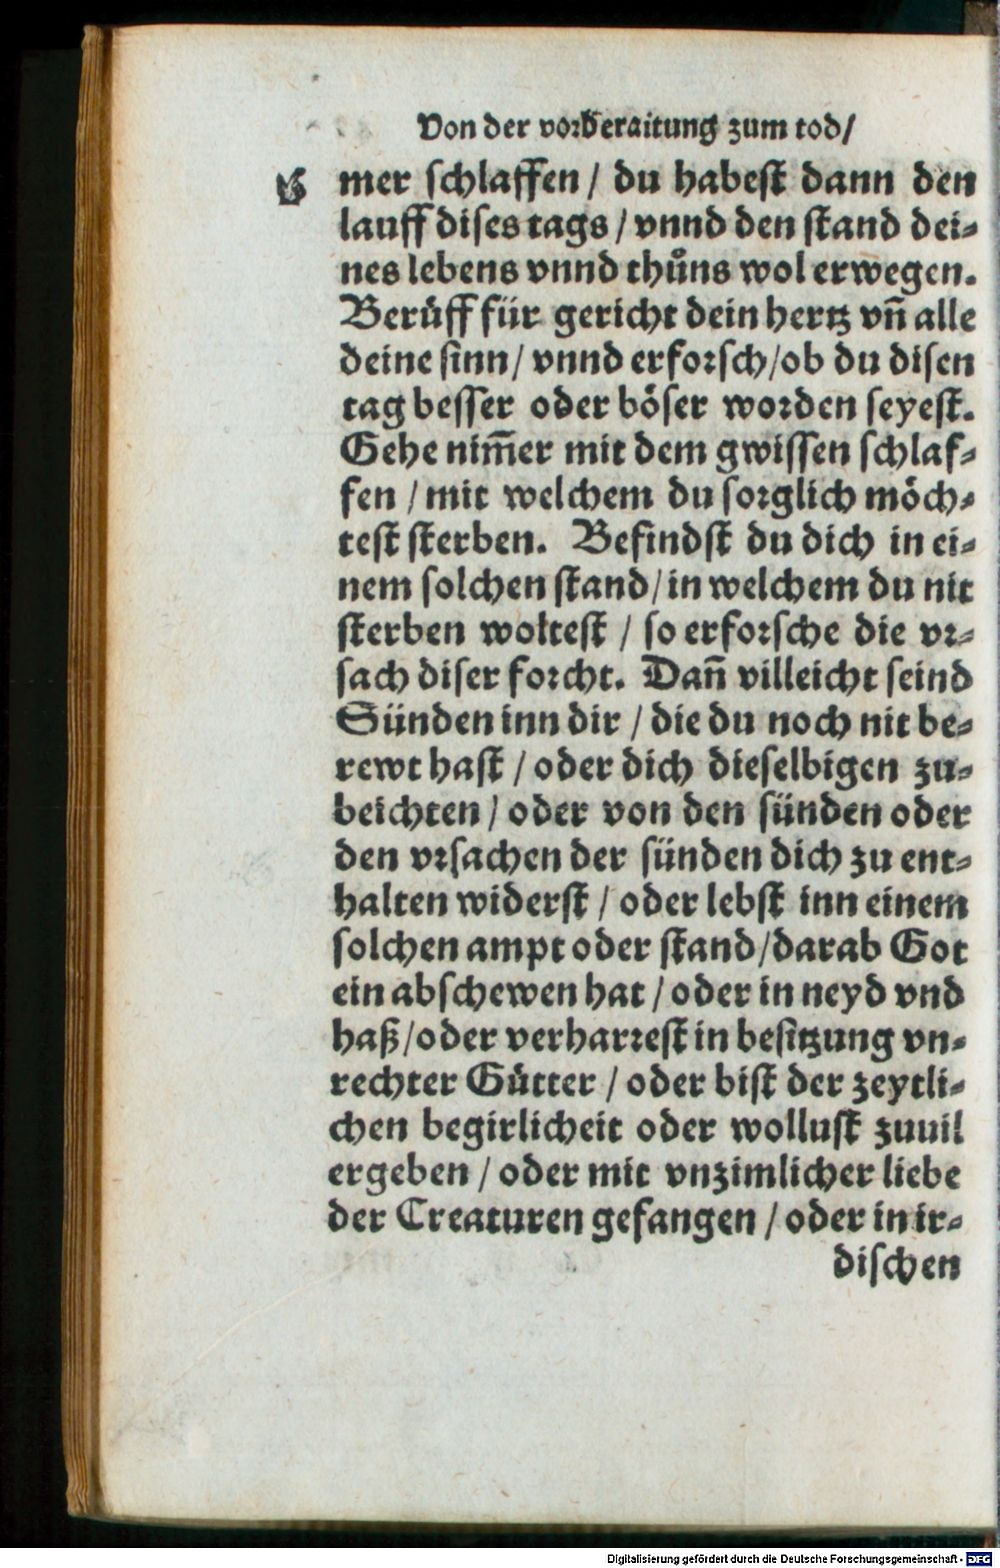 Von der vorberaitung zum tod/
mer schlaffen / du habest dann den
lauff dises tags / vnnd den stand dei⸗
nes lebens vnnd thůns wol erwegen.
Berůff für gericht dein hertz vn̄ alle
deine sinn/ vnnd erforsch/ob du disen
tag besser oder böser worden seyest.
Gehe nim̄er mit dem gwissen schlaf⸗
fen / mit welchem du sorglich möch⸗
test sterben. Befindst du dich in ei⸗
nem solchen stand/in welchem du nit
sterben woltest / so erforsche die vr⸗
sach diser forcht. Dan̄ villeicht seind
Sünden inn dir / die du noch nit be⸗
rewt hast / oder dich dieselbigen zu⸗
beichten / oder von den sünden oder
den vrsachen der sünden dich zu ent⸗
halten widerst / oder lebst inn einem
solchen ampt oder stand/darab Got
ein abschewen hat / oder in neyd vnd
haß/oder verharrest in besitzung vn⸗
rechter Gütter / oder bist der zeytli⸗
chen begirlicheit oder wollust zuuil
ergeben / oder mit vnzimlicher liebe
der Creaturen gefangen / oder in ir⸗
dischen
Digitalisierung gefördert durch die Deutsche Forschungsgemeinschaft - DFG